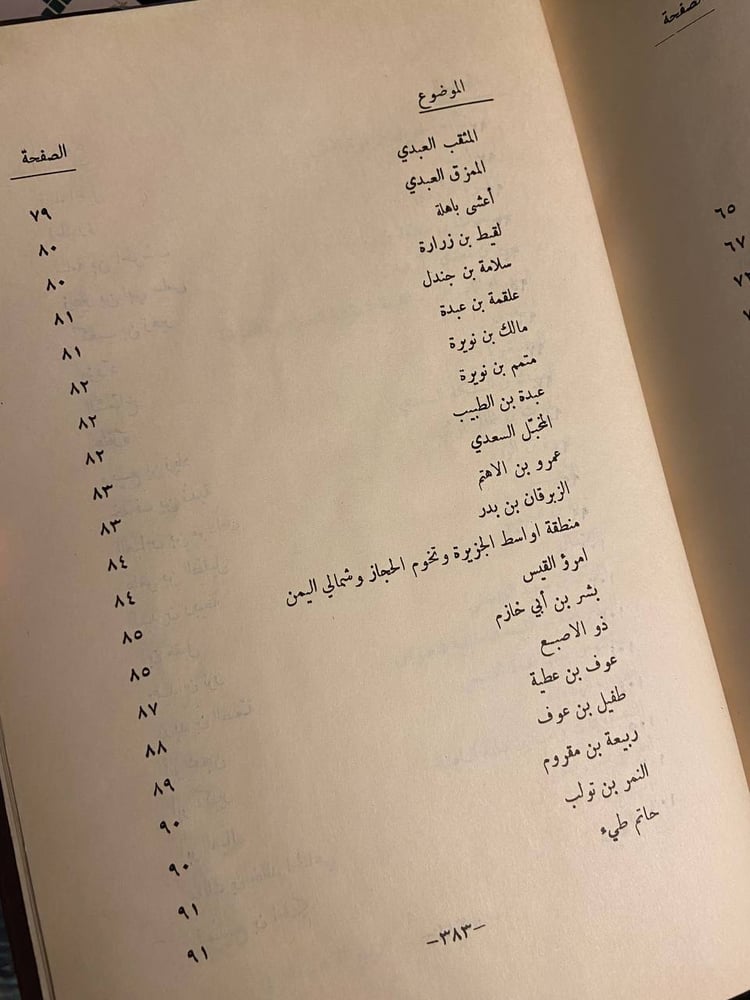 الموضوع الصفحة
المثقب العبدي ٧٩
الممزق العبدي ٨٠
أعشى باهلة ٨٠
لقيط بن زرارة ٨١
سلامة بن جندل ٨١
علقمة بن عبدة ٨٢
مالك بن نويرة ٨٢
متمم بن نويرة ٨٢
عبدة بن الطبيب ٨٣
المخبّل السعدي ٨٣
عمرو بن الاهتم ٨٤
الزبرقان بن بدر ٨٤
منطقة اواسط الجزيرة وتخوم الحجاز وشمالي اليمن ٨٥
امرؤ القيس ٨٥
بشر بن أبي خازم ٨٧
ذو الاصبع ٨٨
عوف بن عطية ٨٩
طفيل بن عوف ٩٠
ربيعة بن مقروم ٩٠
النمر بن تولب ٩١
حاتم طيء ٩١
–٣٨٣–
٦٥
٦٧